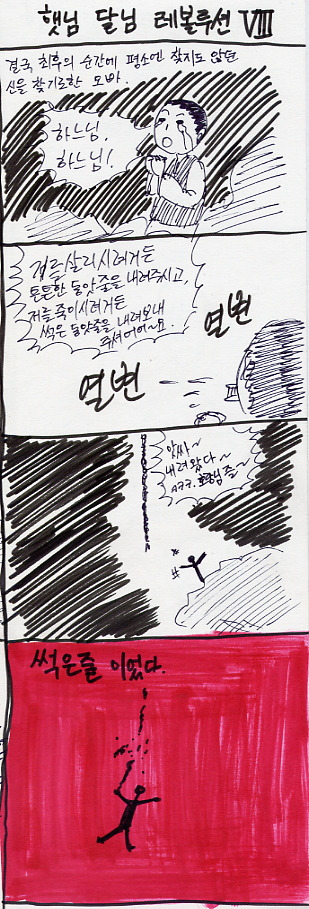 햇님 달님 레볼루션 VIII
결국, 최후의 순간에 평소엔 찾지도 않던
신을 찾기로한 오빠.
하느님,
하느님!
저를 살리시려거든
튼튼한 동앗줄을 내려주시고,
저를 죽이시려거든
썩은 동앗줄을 내려보내
주셔어어~요.
열변
열변
앗싸~
내려왔다~
ㅋㅋㅋ.
줄~
썩은줄 이었다.